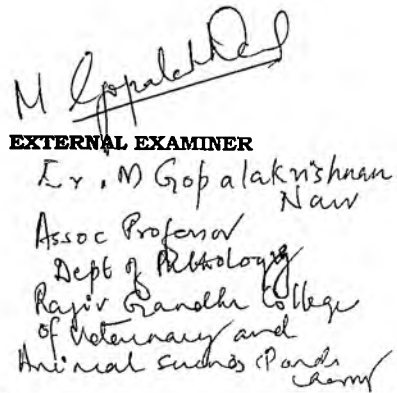 M Gopalakrishnan
EXTERNAL EXAMINER
Dr. M Gopalakrishnan
Nair
Assoc Professor
Dept of Pathology
Rajiv Gandhi College
of Veterinary and
Animal Sciences Pondi
cherry